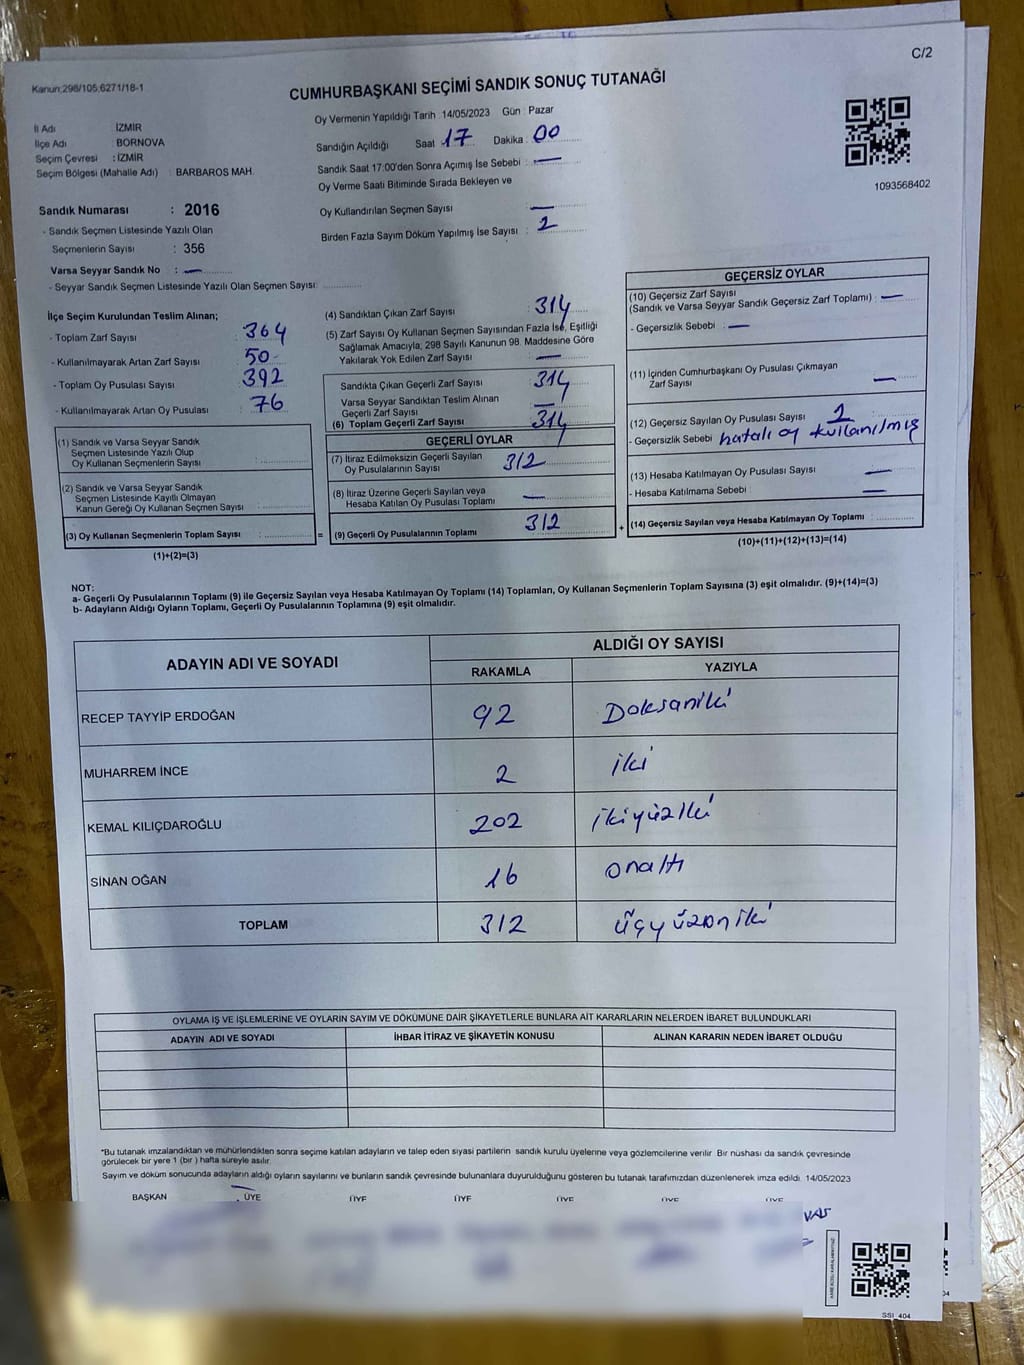 C/2
Kanun;298/105;6271/18-1
CUMHURBAŞKANI SEÇİMİ SANDIK SONUÇ TUTANAĞI
İl Adı İZMİR
İlçe Adı BORNOVA
Seçim Çevresi : İZMİR
Seçim Bölgesi (Mahalle Adı) : BARBAROS MAH.
Sandık Numarası : 2016
- Sandık Seçmen Listesinde Yazılı Olan
Seçmenlerin Sayısı : 356
Varsa Seyyar Sandık No : —
- Seyyar Sandık Seçmen Listesinde Yazılı Olan Seçmen Sayısı:
Oy Vermenin Yapıldığı Tarih 14/05/2023 Gün : Pazar
Sandığın Açıldığı Saat 17 Dakika : 00
Sandık Saat 17:00'den Sonra Açımış İse Sebebi : —
Oy Verme Saati Bitiminde Sırada Bekleyen ve
Oy Kullandırılan Seçmen Sayısı —
Birden Fazla Sayım Döküm Yapılmış İse Sayısı : 2
1093568402
İlçe Seçim Kurulundan Teslim Alınan;
- Toplam Zarf Sayısı 364
- Kullanılmayarak Artan Zarf Sayısı 50
- Toplam Oy Pusulası Sayısı 392
- Kullanılmayarak Artan Oy Pusulası 76
(1) Sandık ve Varsa Seyyar Sandık
Seçmen Listesinde Yazılı Olup
Oy Kullanan Seçmenlerin Sayısı :
(2) Sandık ve Varsa Seyyar Sandık
Seçmen Listesinde Kayıtlı Olmayan
Kanun Gereği Oy Kullanan Seçmen Sayısı :
(3) Oy Kullanan Seçmenlerin Toplam Sayısı : =
(1)+(2)=(3)
(4) Sandıktan Çıkan Zarf Sayısı : 314
(5) Zarf Sayısı Oy Kullanan Seçmen Sayısından Fazla İse, Eşitliği
Sağlamak Amacıyla; 298 Sayılı Kanunun 98. Maddesine Göre
Yakılarak Yok Edilen Zarf Sayısı : —
Sandıkta Çıkan Geçerli Zarf Sayısı : 314
Varsa Seyyar Sandıktan Teslim Alınan
Geçerli Zarf Sayısı : —
(6) Toplam Geçerli Zarf Sayısı : 314
GEÇERLİ OYLAR
(7) İtiraz Edilmeksizin Geçerli Sayılan
Oy Pusulalarının Sayısı : 312
(8) İtiraz Üzerine Geçerli Sayılan veya
Hesaba Katılan Oy Pusulası Toplamı : —
(9) Geçerli Oy Pusulalarının Toplamı : 312 +
GEÇERSİZ OYLAR
(10) Geçersiz Zarf Sayısı
(Sandık ve Varsa Seyyar Sandık Geçersiz Zarf Toplamı) : —
- Geçersizlik Sebebi : —
(11) İçinden Cumhurbaşkanı Oy Pusulası Çıkmayan
Zarf Sayısı : —
(12) Geçersiz Sayılan Oy Pusulası Sayısı : 2
- Geçersizlik Sebebi hatalı oy kullanılmış
(13) Hesaba Katılmayan Oy Pusulası Sayısı : —
- Hesaba Katılmama Sebebi : —
(14) Geçersiz Sayılan veya Hesaba Katılmayan Oy Toplamı :
(10)+(11)+(12)+(13)=(14)
NOT:
a- Geçerli Oy Pusulalarının Toplamı (9) ile Geçersiz Sayılan veya Hesaba Katılmayan Oy Toplamı (14) Toplamları, Oy Kullanan Seçmenlerin Toplam Sayısına (3) eşit olmalıdır. (9)+(14)=(3)
b- Adayların Aldığı Oyların Toplamı, Geçerli Oy Pusulalarının Toplamına (9) eşit olmalıdır.
ADAYIN ADI VE SOYADI ALDIĞI OY SAYISI
RAKAMLA YAZIYLA
RECEP TAYYİP ERDOĞAN 92 Doksaniki
MUHARREM İNCE 2 iki
KEMAL KILIÇDAROĞLU 202 ikiyüziki
SİNAN OĞAN 16 onaltı
TOPLAM 312 üçyüzoniki
OYLAMA İŞ VE İŞLEMLERİNE VE OYLARIN SAYIM VE DÖKÜMÜNE DAİR ŞİKAYETLERLE BUNLARA AİT KARARLARIN NELERDEN İBARET BULUNDUKLARI
ADAYIN ADI VE SOYADI İHBAR İTİRAZ VE ŞİKAYETİN KONUSU ALINAN KARARIN NEDEN İBARET OLDUĞU
*Bu tutanak imzalandıktan ve mühürlendikten sonra seçime katılan adayların ve talep eden siyasi partilerin sandık kurulu üyelerine veya gözlemcilerine verilir. Bir nüshası da sandık çevresinde
görülecek bir yere 1 (bir) hafta süreyle asılır.
Sayım ve döküm sonucunda adayların aldığı oyların sayılarını ve bunların sandık çevresinde bulunanlara duyurulduğunu gösteren bu tutanak tarafımızdan düzenlenerek imza edildi. 14/05/2023
BAŞKAN ÜYE ÜYE ÜYE ÜYE ÜYE ÜYE
SSI_404